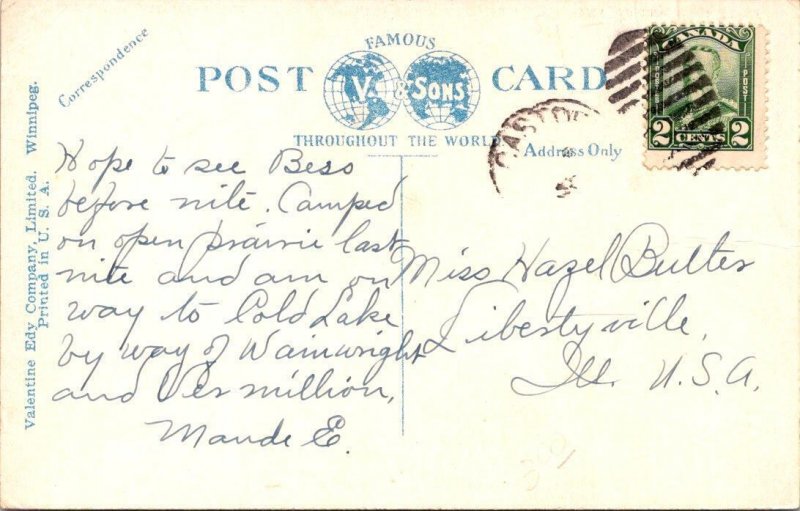 Correspondence
FAMOUS
POST CARD
V. & SONS
THROUGHOUT THE WORLD
Address Only
CANADA
POST POST
2 CENTS 2
CASTO
Valentine Edy Company, Limited. Winnipeg.
Printed in U. S. A.
Hope to see Bess
before nite. Camped
on open prairie last
nite and am on
way to Cold Lake
by way of Wainwright
and Vermillion,
Maude E.
Miss Hazel Butler
Libertyville,
Ill. U.S.A.